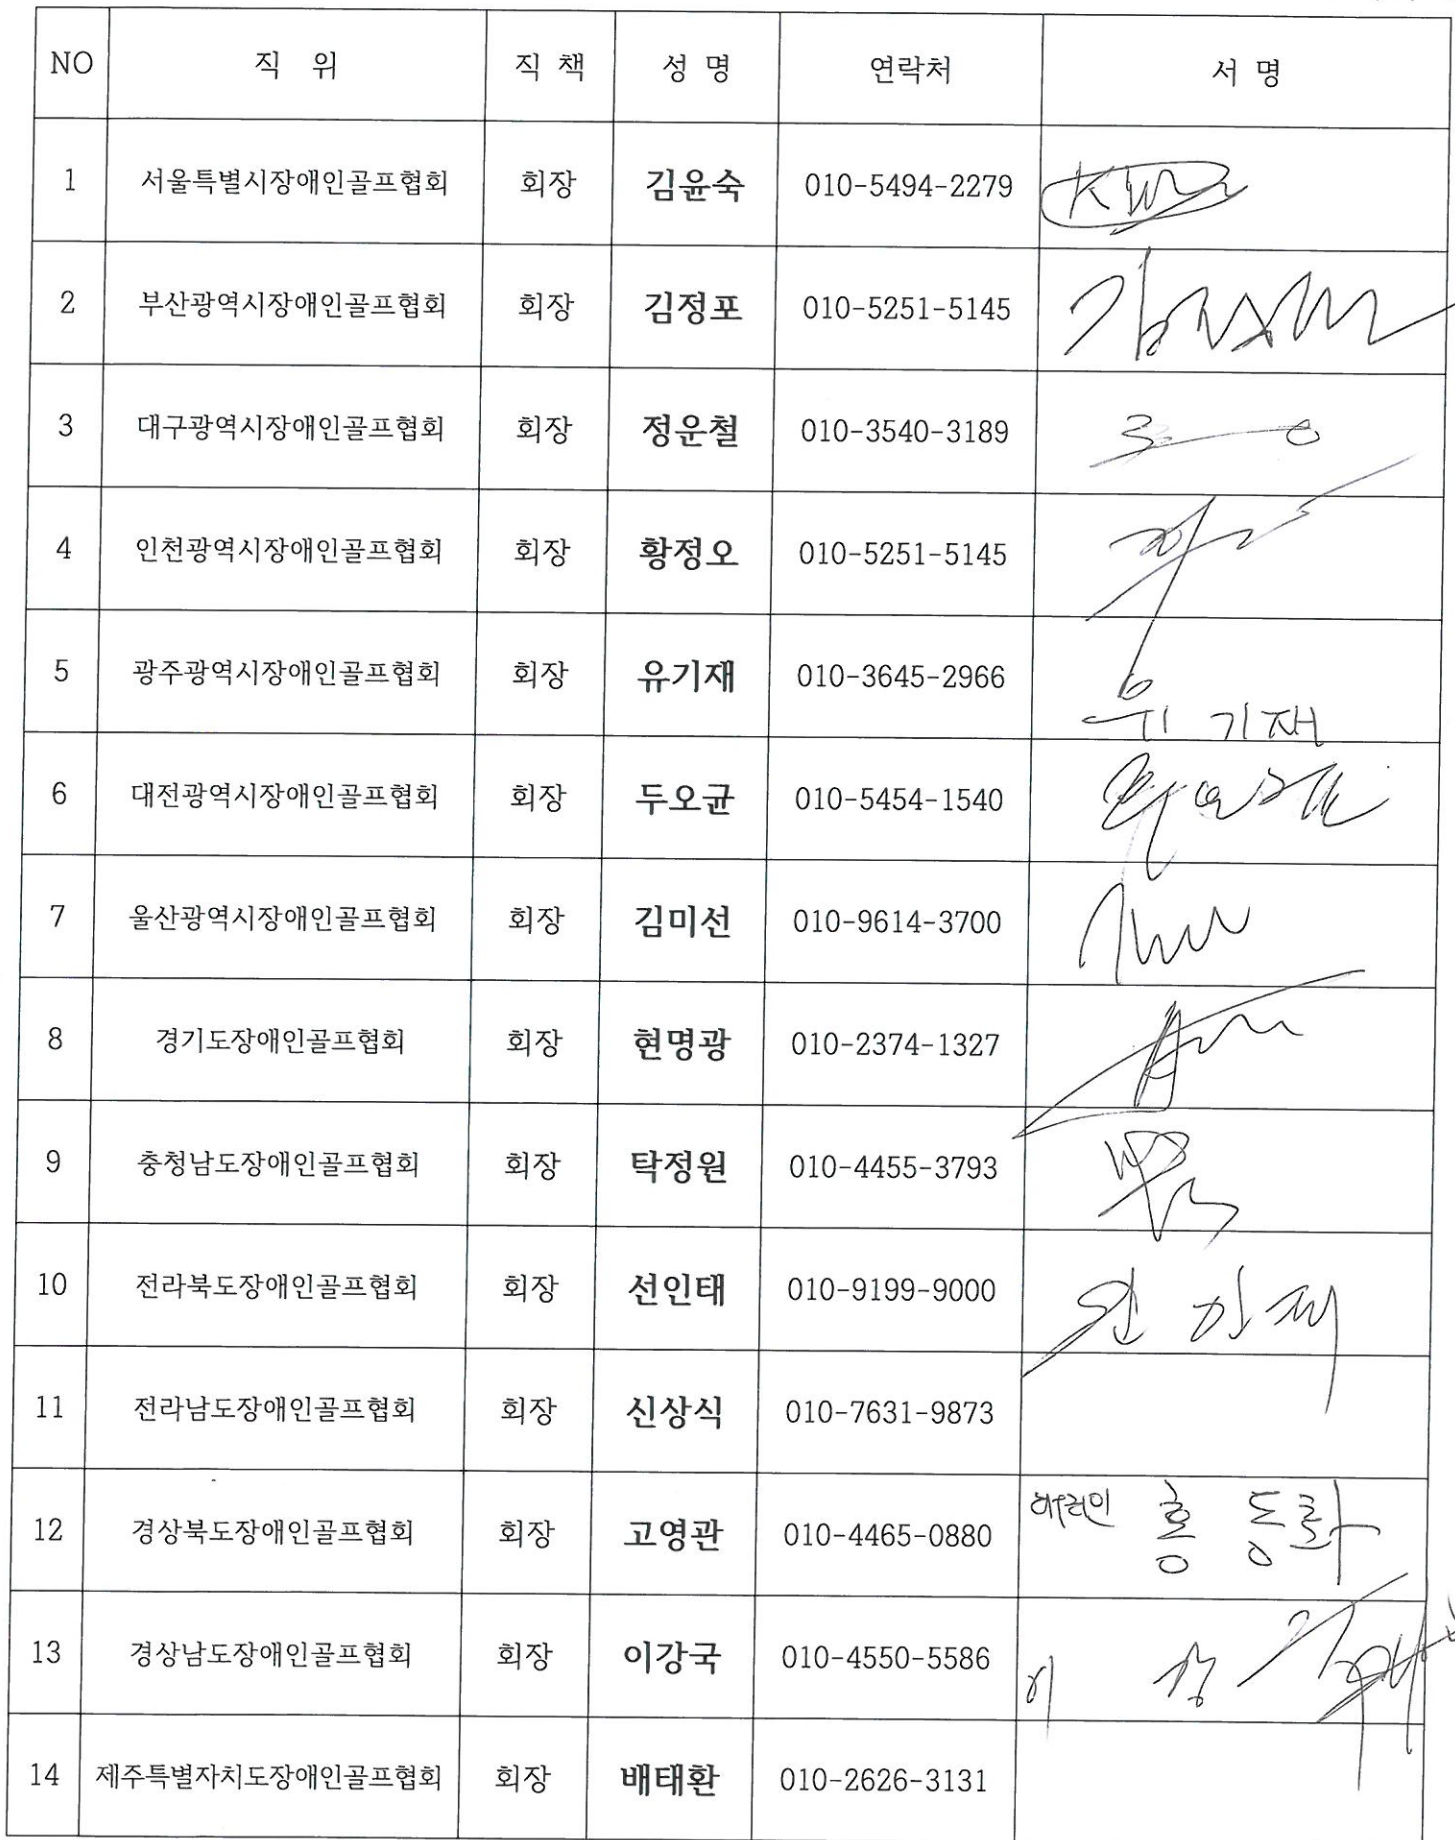 NO 직 위 직 책 성 명 연락처 서 명
1 서울특별시장애인골프협회 회장 김윤숙 010-5494-2279
2 부산광역시장애인골프협회 회장 김정포 010-5251-5145
3 대구광역시장애인골프협회 회장 정운철 010-3540-3189
4 인천광역시장애인골프협회 회장 황정오 010-5251-5145
5 광주광역시장애인골프협회 회장 유기재 010-3645-2966 유기재
6 대전광역시장애인골프협회 회장 두오균 010-5454-1540
7 울산광역시장애인골프협회 회장 김미선 010-9614-3700
8 경기도장애인골프협회 회장 현명광 010-2374-1327
9 충청남도장애인골프협회 회장 탁정원 010-4455-3793
10 전라북도장애인골프협회 회장 선인태 010-9199-9000
11 전라남도장애인골프협회 회장 신상식 010-7631-9873
12 경상북도장애인골프협회 회장 고영관 010-4465-0880 대리인 홍동화
13 경상남도장애인골프협회 회장 이강국 010-4550-5586 이강국
14 제주특별자치도장애인골프협회 회장 배태환 010-2626-3131